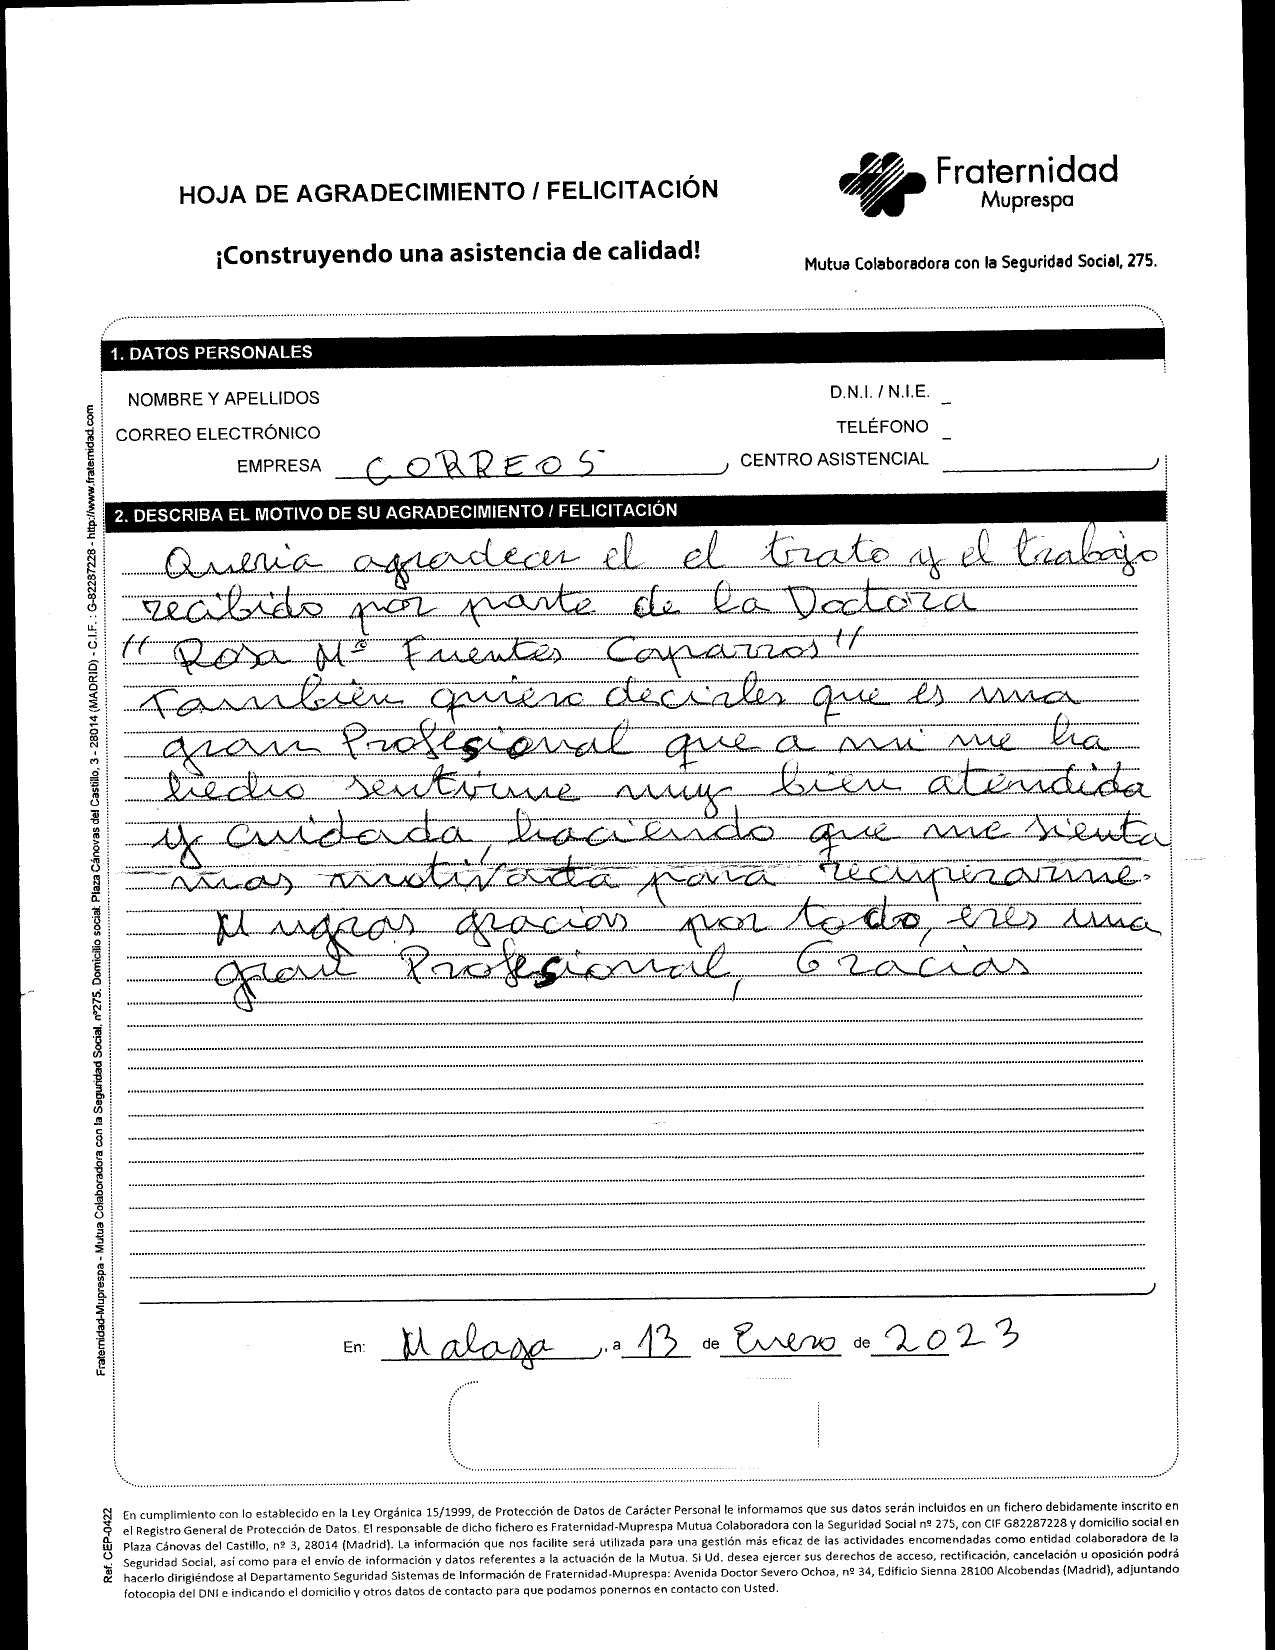 Fraternidad
Muprespa
HOJA DE AGRADECIMIENTO / FELICITACIÓN
¡Construyendo una asistencia de calidad!
Mutua Colaboradora con la Seguridad Social, 275.
1. DATOS PERSONALES
NOMBRE Y APELLIDOS
D.N.I. / N.I.E.
CORREO ELECTRÓNICO
TELÉFONO
EMPRESA CORREOS
CENTRO ASISTENCIAL
2. DESCRIBA EL MOTIVO DE SU AGRADECIMIENTO / FELICITACIÓN
Queria agradecer el el trato y el trabajo
recibido por parte de la Doctora
"Rosa Mª Fuentes Caparros"
También quiero decirles que es una
gran Profesional que a mi me ha
hecho sentirme muy bien atendida
y cuidada, haciendo que me sienta
mas motivada para recuperarme.
Mugras gracias por todo, eres una
gran Profesional, Gracias
En: Malaga, a 13 de Enero de 2023
Fraternidad-Muprespa - Mutua Colaboradora con la Seguridad Social, nº275. Domicilio social: Plaza Cánovas del Castillo, 3 - 28014 (MADRID) - C.I.F. : G-82287228 - http://www.fraternidad.com
Ref. CEP-0422
En cumplimiento con lo establecido en la Ley Orgánica 15/1999, de Protección de Datos de Carácter Personal le informamos que sus datos serán incluidos en un fichero debidamente inscrito en
el Registro General de Protección de Datos. El responsable de dicho fichero es Fraternidad-Muprespa Mutua Colaboradora con la Seguridad Social nº 275, con CIF G82287228 y domicilio social en
Plaza Cánovas del Castillo, nº 3, 28014 (Madrid). La información que nos facilite será utilizada para una gestión más eficaz de las actividades encomendadas como entidad colaboradora de la
Seguridad Social, así como para el envío de información y datos referentes a la actuación de la Mutua. Si Ud. desea ejercer sus derechos de acceso, rectificación, cancelación u oposición podrá
hacerlo dirigiéndose al Departamento Seguridad Sistemas de Información de Fraternidad-Muprespa: Avenida Doctor Severo Ochoa, nº 34, Edificio Sienna 28100 Alcobendas (Madrid), adjuntando
fotocopia del DNI e indicando el domicilio y otros datos de contacto para que podamos ponernos en contacto con Usted.